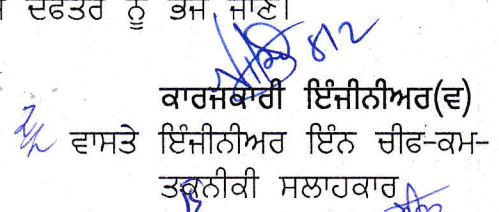 ਦਫਤਰ ਨੂੰ ਭੇਜੇ ਜਾਣ।
8/2
ਕਾਰਜਕਾਰੀ ਇੰਜੀਨੀਅਰ(ਵ)
ਵਾਸਤੇ ਇੰਜੀਨੀਅਰ ਇੰਨ ਚੀਫ-ਕਮ-
ਤਕਨੀਕੀ ਸਲਾਹਕਾਰ